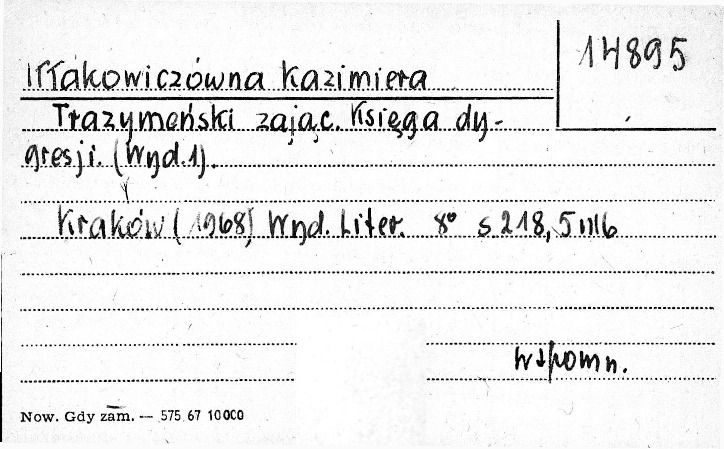 14895
Iłłakowiczówna Kazimiera
Trazymeński zając. Księga dy-
gresji. (Wyd.1).
Kraków (1968) Wyd. Liter. 8° s 218, 5 nlb
wspomn.
Now. Gdy zam. — 575 67 10000